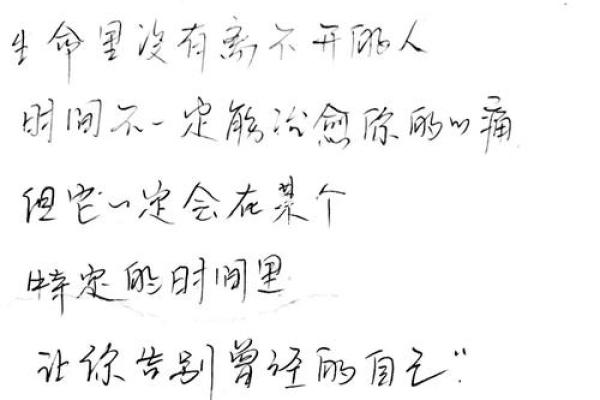 生命里没有离不开的人
时间不一定能治愈你的心痛
但它一定会在某个
特定的时间里
让你告别曾经的自己"